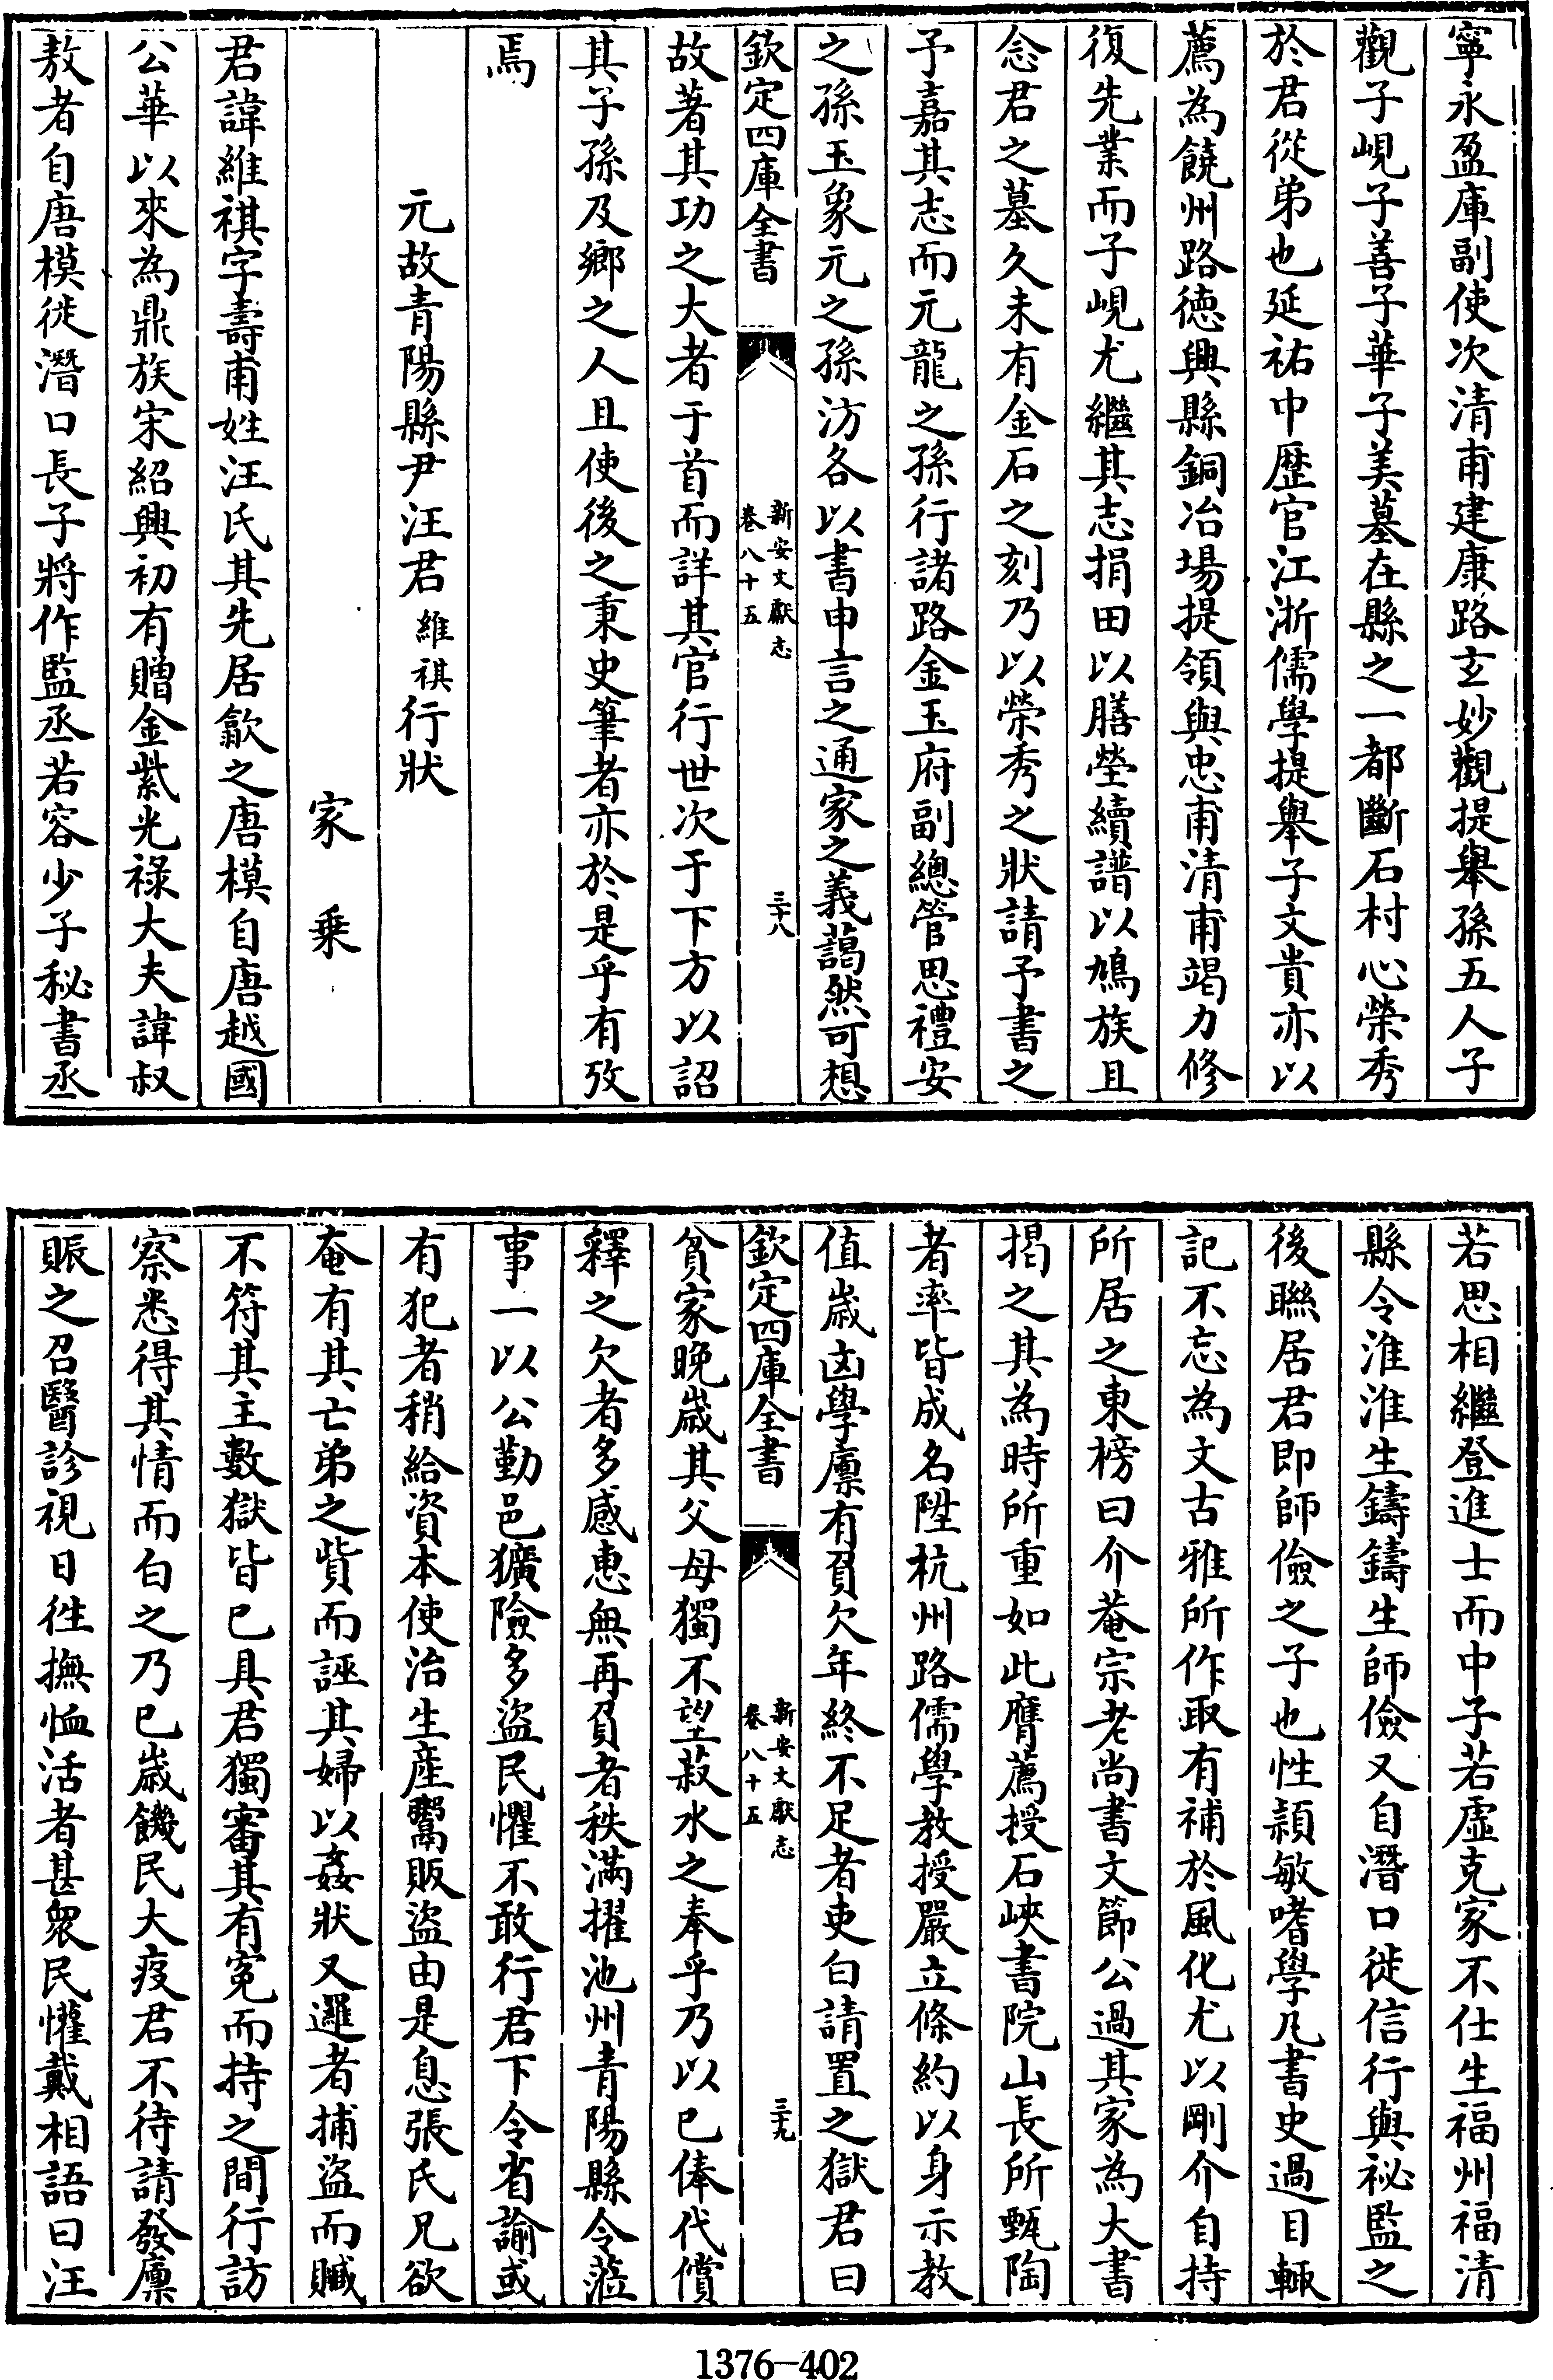 寧永盈庫副使次清甫建康路玄妙觀提舉孫五人子
觀子峴子善子華子美墓在縣之一都斷石村心榮秀
於君從弟也延祐中歴官江浙儒學提舉子文貴亦以
薦為饒州路德興縣銅冶場提領與忠甫清甫竭力修
復先業而子峴尤繼其志捐田以膳塋續譜以鳩族且
念君之墓久未有金石之刻乃以榮秀之狀請予書之
予嘉其志而元龍之孫行諸路金玉府副總管思禮安
之孫玉象元之孫汸各以書申言之通家之義藹然可想
欽定四庫全書
新安文獻志
卷八十五
三十八
故著其功之大者于首而詳其官行世次于下方以詔
其子孫及鄉之人且使後之秉史筆者亦於是乎有攷
焉
元故青陽縣尹汪君維祺行狀
家乗
君諱維祺字壽甫姓汪氏其先居歙之唐模自唐越國
公華以來為鼎族宋紹興初有贈金紫光祿大夫諱叔
敖者自唐模徙潛口長子將作監丞若容少子秘書丞
若思相繼登進士而中子若虛克家不仕生福州福清
縣令淮淮生鑄鑄生師儉又自潛口徙信行與祕監之
後聯居君即師儉之子也性頴敏嗜學凡書史過目輒
記不忘為文古雅所作取有補於風化尤以剛介自持
所居之東榜曰介菴宗老尚書文節公過其家為大書
揭之其為時所重如此膺薦授石峽書院山長所甄陶
者率皆成名陞杭州路儒學教授嚴立條約以身示教
值歳凶學廩有負欠年終不足者吏白請置之獄君曰
欽定四庫全書
新安文獻志
卷八十五
三十九
貧家晚歳其父母獨不望菽水之奉乎乃以已俸代償
釋之欠者多感惠無再負者秩滿擢池州青陽縣令蒞
事一以公勤邑獷險多盜民懼不敢行君下令省諭或
有犯者稍給資本使治生産鬻販盜由是息張氏兄欲
奄有其亡弟之貲而誣其婦以姦狀又邏者捕盜而贓
不符其主數獄皆已具君獨審其有寃而持之間行訪
察悉得其情而白之乃已歳饑民大疫君不待請發廩
賑之召醫診視日徃撫恤活者甚衆民懽戴相語曰汪
1376-402